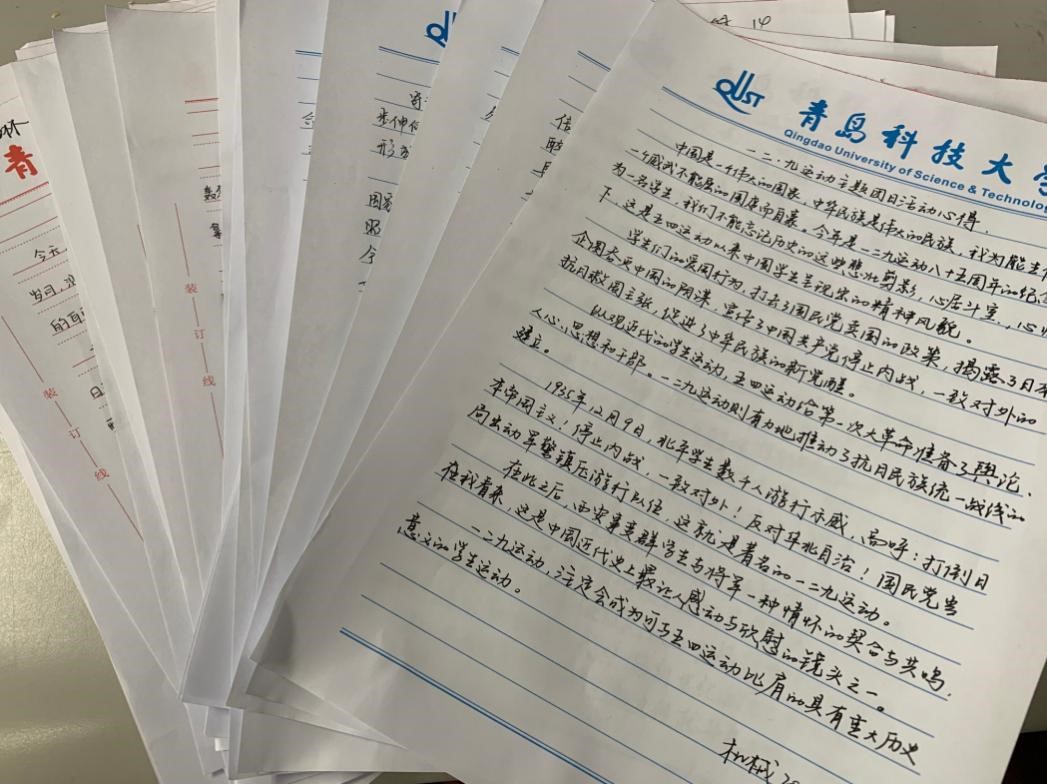 14
QUST 青岛科技大学
Qingdao University of Science & Technology
一二·九运动主题团日活动心得.
中国是一个伟大的国家，中华民族是伟大的民族，我为能生
一个威武不能屈的国度而自豪。今年是一二九运动八十五周年的纪念
为一名学生，我们不能忘记历史的这些悲壮剪影，心居斗室，心
下，这是五四运动以来中国学生呈现出的精神风貌。
学生们的爱国行为，打击了国民党卖国的政策，揭露了日本
企图吞并中国的阴谋，宣传了中国共产党停止内战，一致对外的
抗日救国主张，促进了中华民族的新觉醒。
纵观近代的学生运动，五四运动给第一次大革命准备了舆论、
人心、思想和干部。一二九运动则有力地推动了抗日民族统一战线的
建立。
1935年12月9日，北平学生数千人游行示威，高呼：打倒日
本帝国主义！停止内战，一致对外！反对华北自治！国民党当
局出动军警镇压游行队伍，这就是著名的一二九运动。
在此之后，西安事变群学生与将军一种情怀的契合与共鸣，
在我看来，这是中国近代史上最让人感动与欣慰的镜头之一。
一二九运动，注定会成为可与五四运动比肩的具有重大历史
意义的学生运动。
机械
青
今天
的
装
订
线
装
订
线
形
国